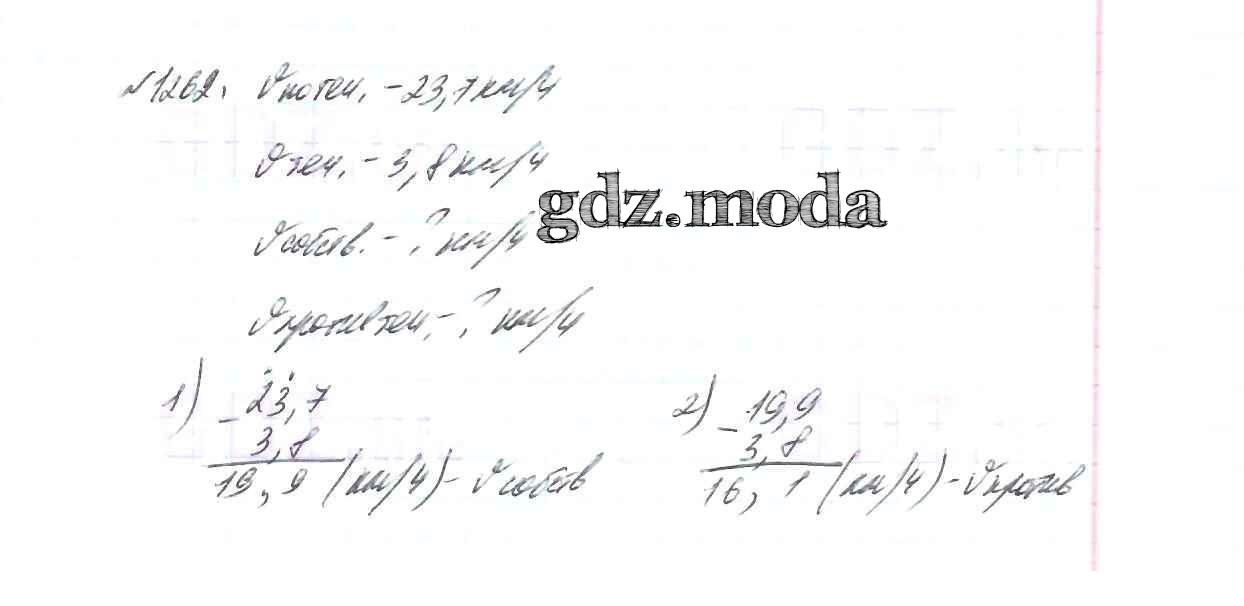 №1262. Vпотеч. - 23,7 км/ч
Vтеч. - 3,8 км/ч
gdz.moda
Vсобств. - ? км/ч
Vпротивтеч. - ? км/ч
1) - 23,7
3,8
19,9 (км/ч) - Vсобств
2) - 19,9
3,8
16,1 (км/ч) - Vпротив